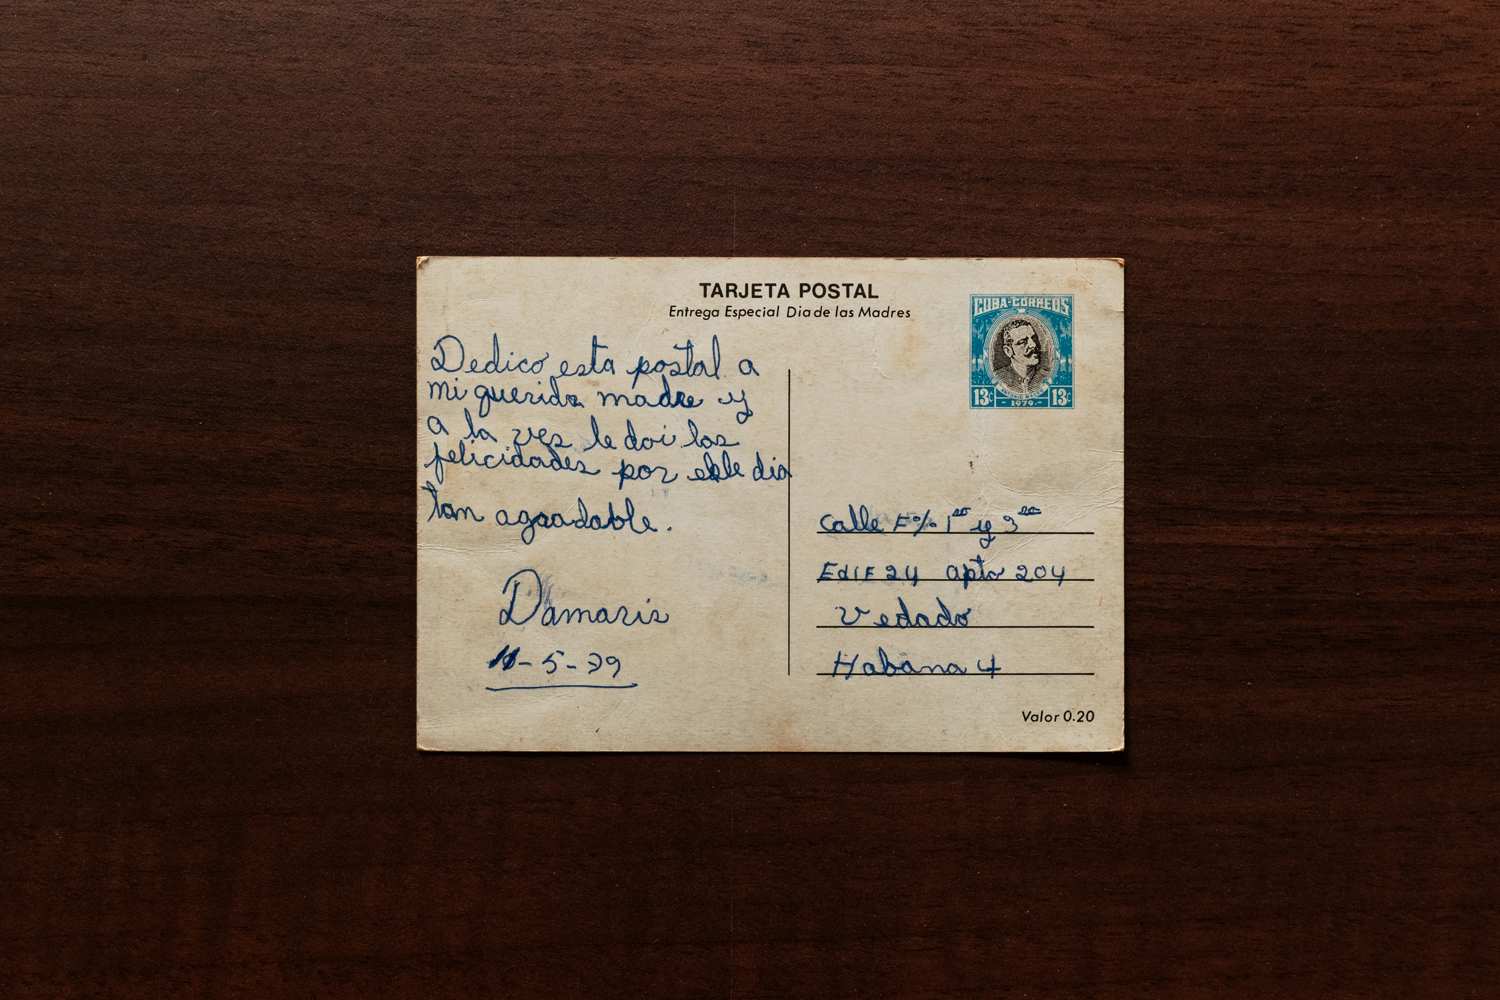 TARJETA POSTAL
Entrega Especial Dia de las Madres
CUBA-CORREOS
13c 13c
- 1979 -
Dedico esta postal a
mi querida madre y
a la vez le doi las
felicidades por este dia
tan agradable.
Damaris
11-5-79
Calle F % 1ra y 3ra
Edif 24 apto 204
Vedado
Habana 4
Valor 0.20